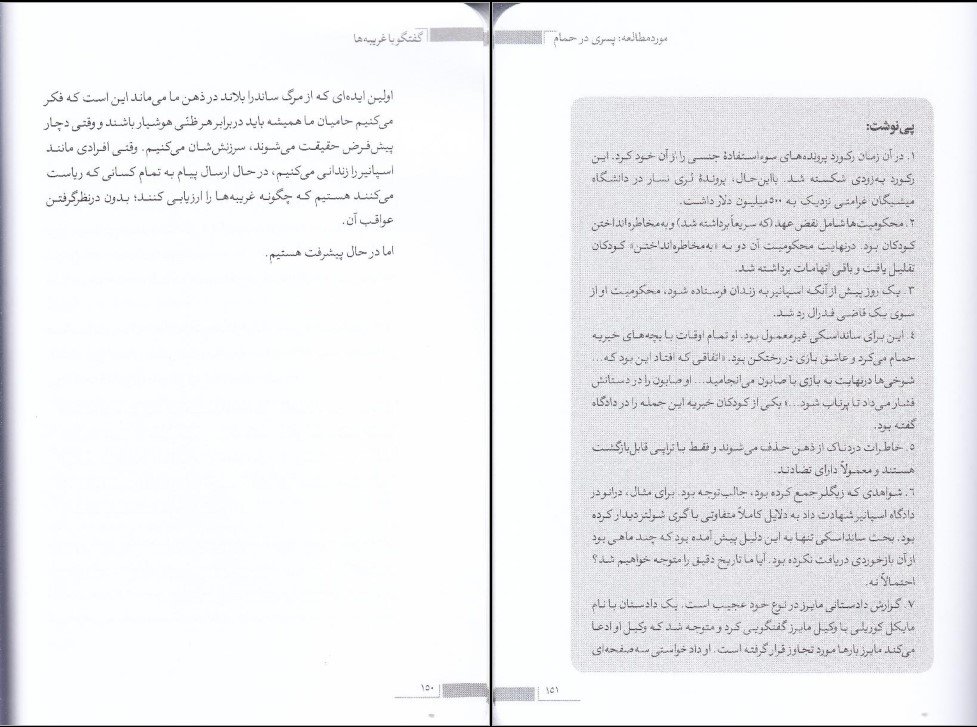 گفتگو با غریبه‌ها
اولین ایده‌ای که از مرگ ساندرا بلاند در ذهن ما می‌ماند این است که فکر
می‌کنیم حامیان ما همیشه باید در برابر هر ظنّی هوشیار باشند و وقتی دچار
پیش‌فرض حقیقت می‌شوند، سرزنش‌شان می‌کنیم. وقتی افرادی مانند
اسپانیر را زندانی می‌کنیم، در حال ارسال پیام به تمام کسانی که ریاست
می‌کنند هستیم که چگونه غریبه‌ها را ارزیابی کنند؛ بدون درنظرگرفتن
عواقب آن.
اما در حال پیشرفت هستیم.
۱۵۰
مورد مطالعه: پسری در حمام
پی‌نوشت:
۱. در آن زمان رکورد پرونده‌های سوءاستفادهٔ جنسی را از آن خود کرد. این
رکورد به‌زودی شکسته شد. بااین‌حال، پروندهٔ لری نسار در دانشگاه
میشیگان غرامتی نزدیک به ۵۰۰ میلیون دلار داشت.
۲. محکومیت‌ها شامل نقض عهد (که سریعاً برداشته شد) و به‌مخاطره‌انداختن
کودکان بود. درنهایت محکومیت آن دو به «به‌مخاطره‌انداختن» کودکان
تقلیل یافت و باقی اتهامات برداشته شد.
۳. یک روز پیش از آنکه اسپانیر به زندان فرستاده شود، محکومیت او از
سوی یک قاضی فدرال رد شد.
٤. این برای سانداسکی غیرمعمول بود. او تمام اوقات با بچه‌های خیریه
حمام می‌کرد و عاشق بازی در رختکن بود. «اتفاقی که افتاد این بود که...
شوخی‌ها درنهایت به بازی با صابون می‌انجامید... او صابون را در دستانش
فشار می‌داد تا پرتاب شود...» یکی از کودکان خیریه این جمله را در دادگاه
گفته بود.
۵. خاطرات دردناک از ذهن حذف می‌شوند و فقط با تراپی قابل‌بازگشت
هستند و معمولاً دارای تضادند.
٦. شواهدی که زیگلر جمع کرده بود، جالب‌توجه بود. برای مثال، درانو در
دادگاه اسپانیر شهادت داد به دلایل کاملاً متفاوتی با گری شولتز دیدار کرده
بود. بحث سانداسکی تنها به این دلیل پیش آمده بود که چند ماهی بود
از آن بازخوردی دریافت نکرده بود. آیا ما تاریخ دقیق را متوجه خواهیم شد؟
احتمالاً نه.
۷. گزارش دادستانی مایرز در نوع خود عجیب است. یک دادستان با نام
مایکل کوریلی با وکیل مایرز گفتگویی کرد و متوجه شد که وکیل او ادعا
می‌کند مایرز بارها مورد تجاوز قرار گرفته است. او دادخواستی سه صفحه‌ای
۱۵۱